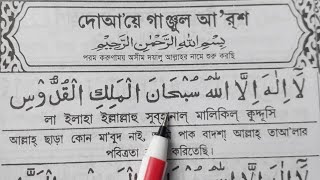 দোআ'য়ে গাঞ্জুল আ'রশ
بِسْمِ اللهِ الرَّحْمٰنِ الرَّحِيْمِ
পরম করুণাময় অসীম দয়ালু আল্লাহর নামে শুরু করছি
لَا اِلٰهَ اِلَّا اللهُ سُبْحَانَ الْمَلِكِ الْقُدُّوْسِ
লা ইলাহা ইল্লাল্লাহু সুবহানাল মালিকিল কুদ্দূসি
আল্লাহ্ ছাড়া কোন মা'বুদ নাই, পাক বাদশা আল্লাহ্ তাআ'লার
পবিত্রতা করিতেছি।